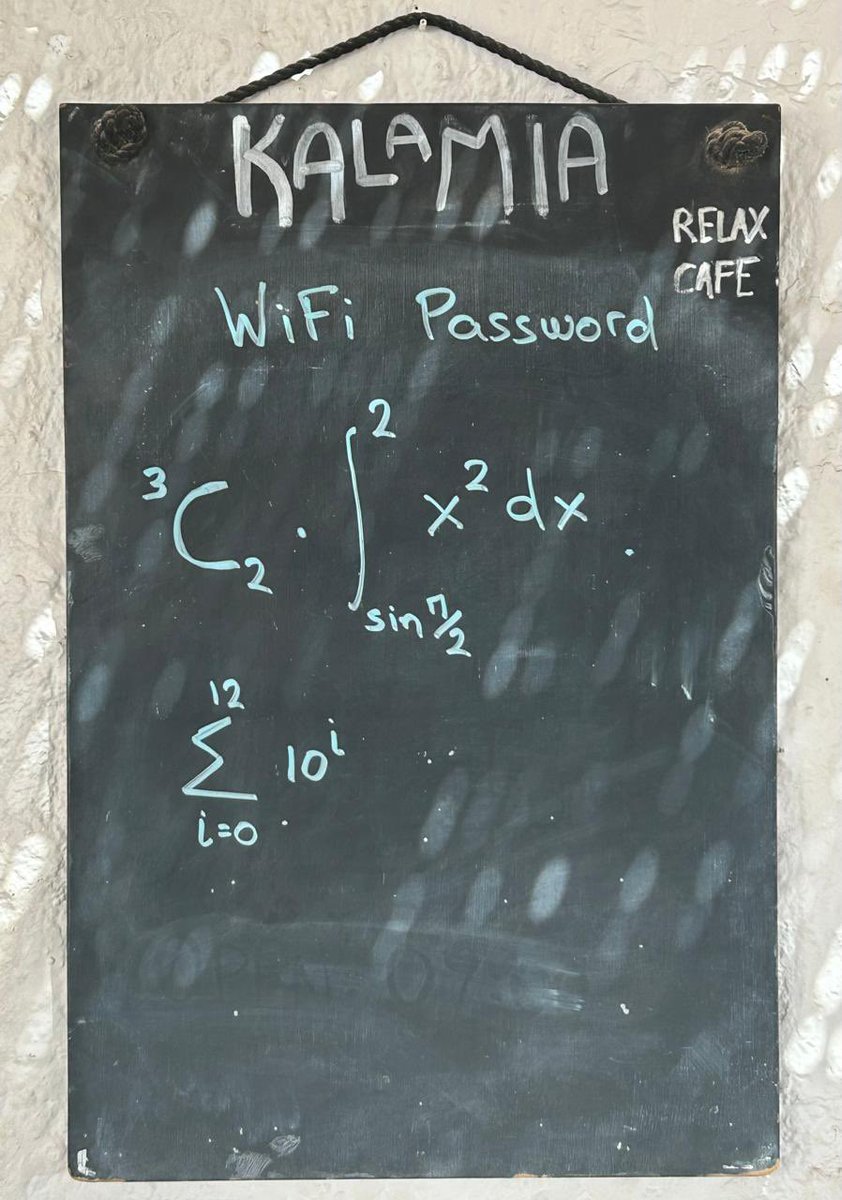 KALAMIA
RELAX
CAFE
WiFi Password
³C₂ · ∫_{sin π/2}^{2} x² dx ·
∑_{i=0}^{12} 10^i